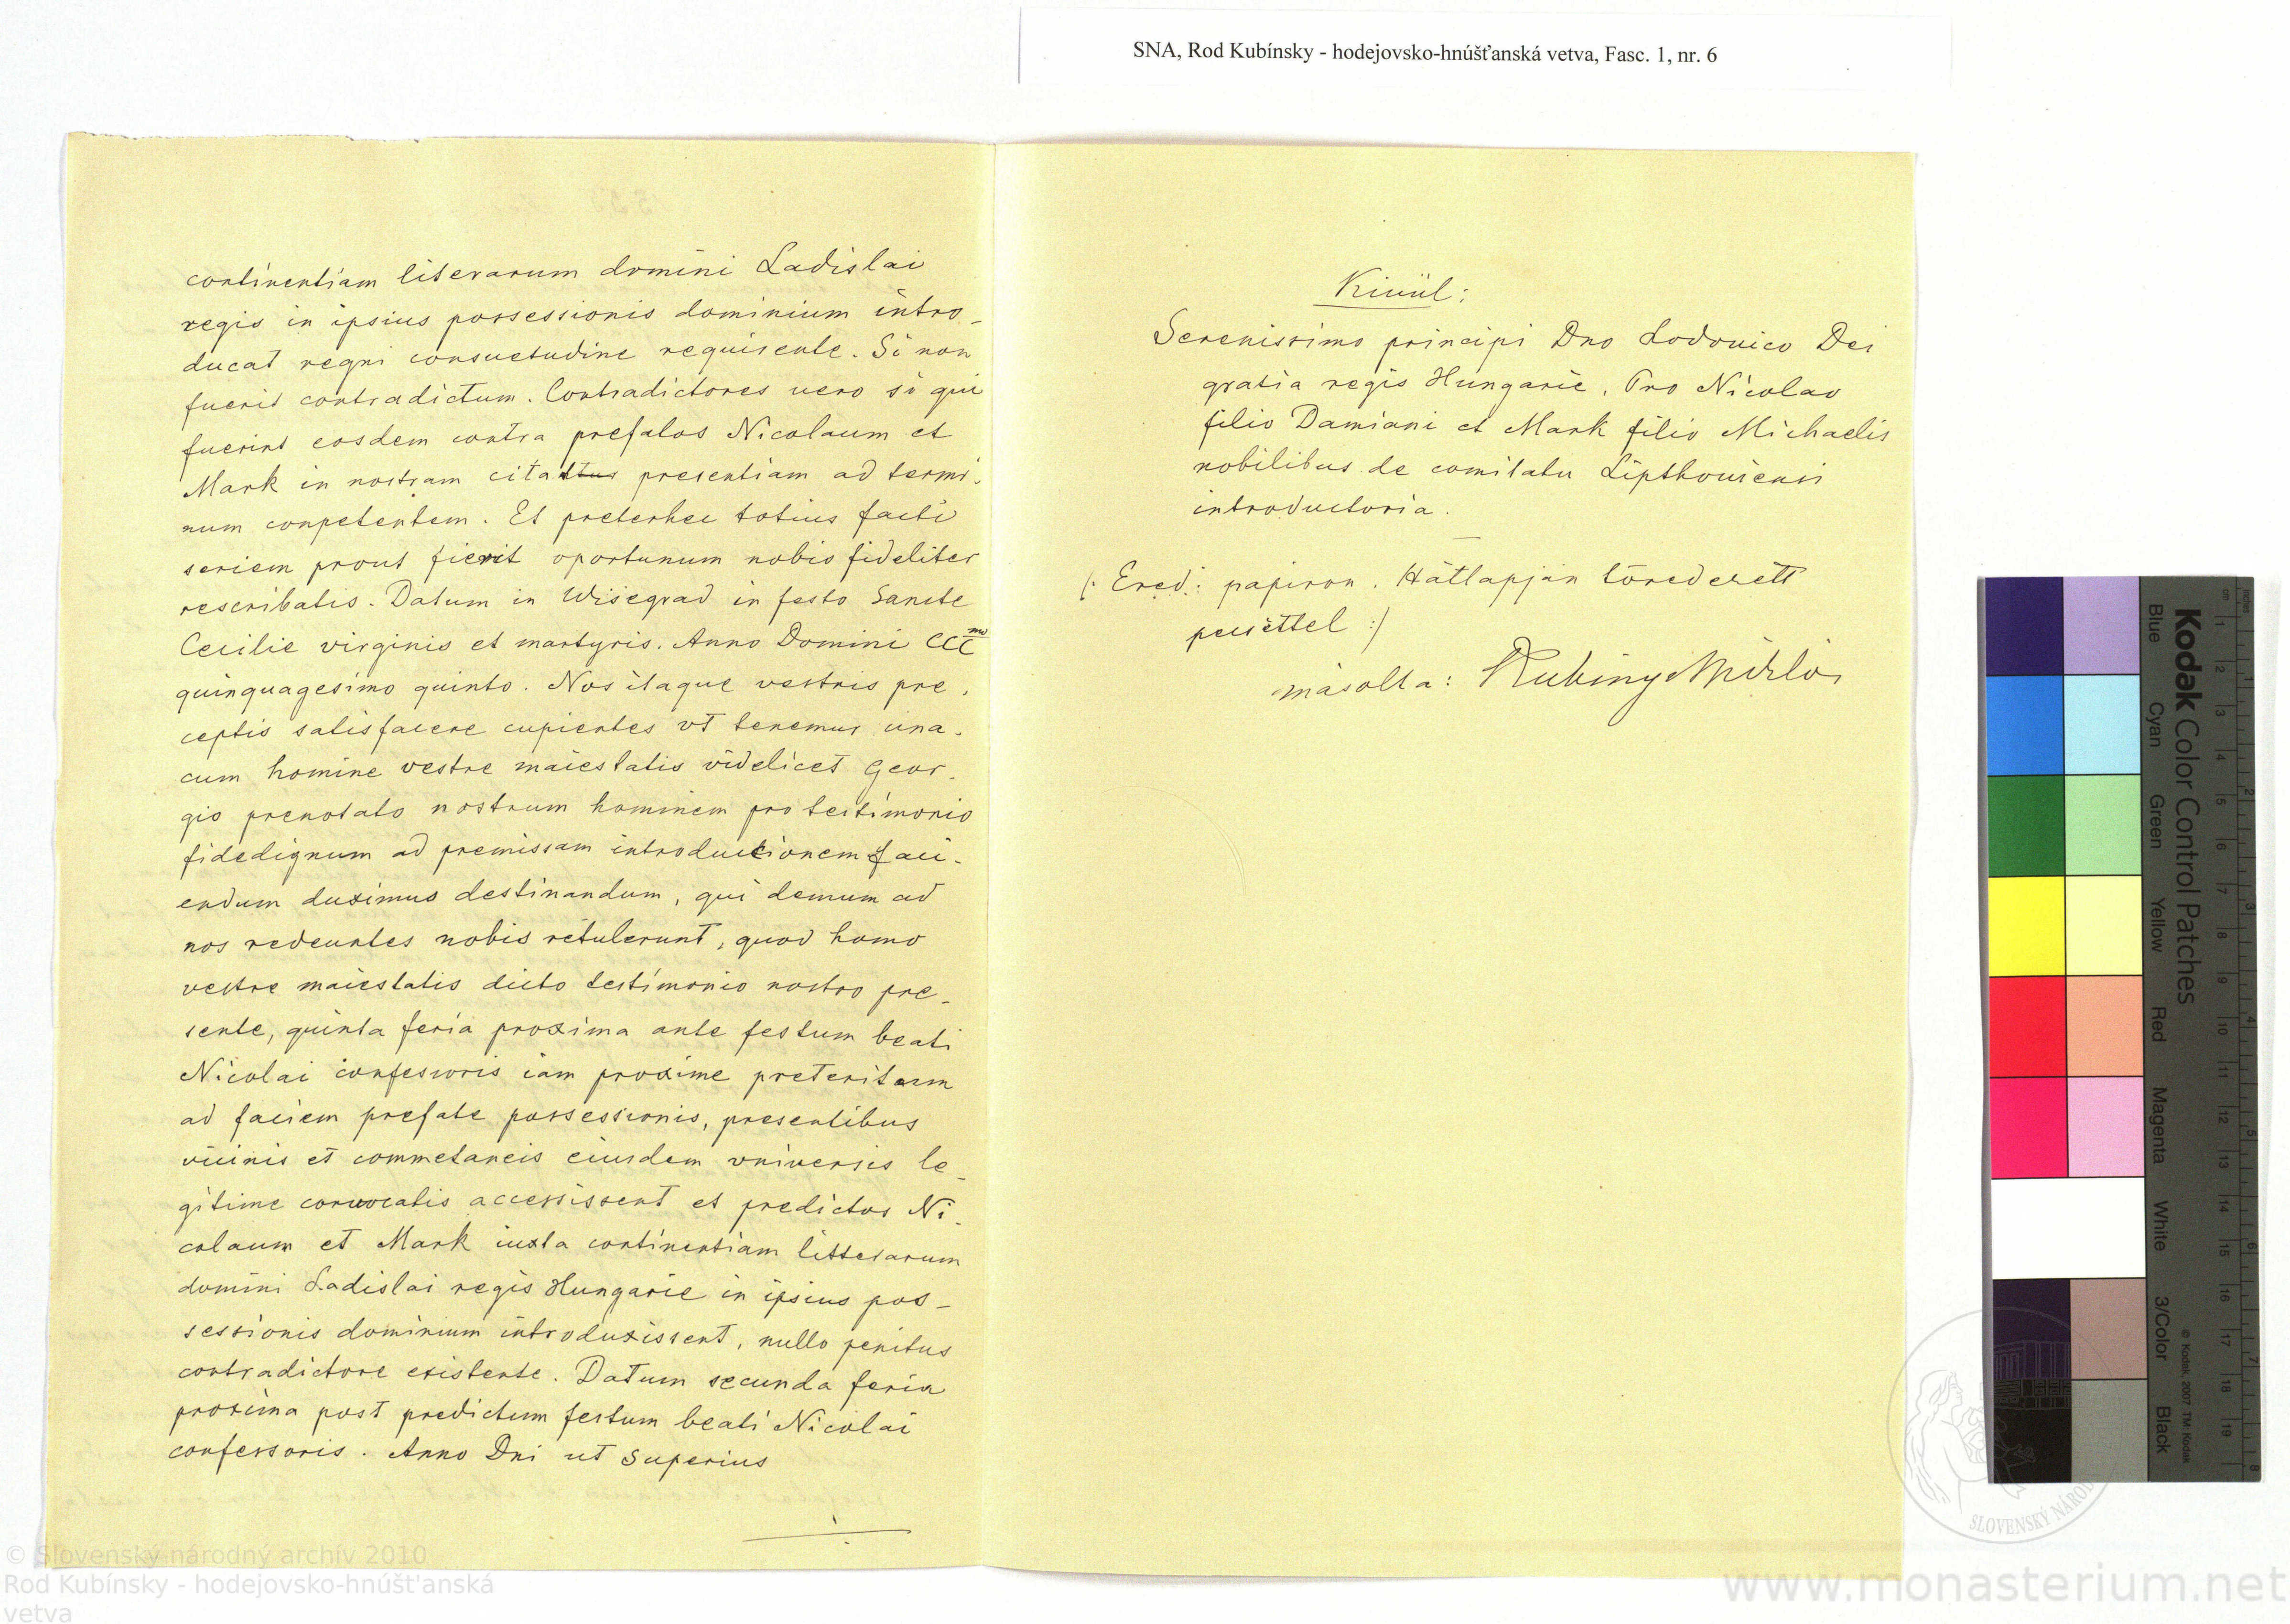 SNA, Rod Kubínsky - hodejovsko-hnúšťanská vetva, Fasc. 1, nr. 6
continentiam literarum domini Ladislai
regis in ipsius possessionis dominium intro-
ducat regni consuetudine requirente. Si non
fuerit contradictum. Contradictores uero si qui
fuerint eosdem contra prefatos Nicolaum et
Mark in nostram citattus presentiam ad termi-
num conpetentem. Et preterhec totius facti
seriem prout fierit oportunum nobis fideliter
rescribatis. Datum in Wisegrad in festo Sancte
Cecilie virginis et martyris. Anno Domini CCCmo
quinquagesimo quinto. Nos itaque vestris pre-
ceptis satisfacere cupientes vt tenemur una-
cum homine vestre maiestatis videlicet Geor-
gio prenotato nostrum hominem pro testimonio
fidedignum ad premissam introductionem faci-
endum duximus destinandum, qui demum ad
nos redeuntes nobis retulerunt, quod homo
vestre maiestatis dicto testimonio nostro pre-
sente, quinta feria proxima ante festum beati
Nicolai confessoris iam proxime preteritum
ad faciem prefate possessionis, presentibus
vicinis et commetaneis eiusdem vniversis le-
gitime convocatis accessissent et predictos Ni-
colaum et Mark iuxta continentiam litterarum
domini Ladislai regis Hungarie in ipsius pos-
sessionis dominium introduxissent, nullo penitus
contradictore existente. Datum secunda feria
proxima post predictum festum beati Nicolai
confessoris. Anno Dni ut superius
Kivül:
Serenissimo principi Dno Lodouico Dei
gratia regis Hungarie. Pro Nicolao
filio Damiani et Mark filio Michaelis
nobilibus de comitatu Lipthouiensi
introductoria.
(: Ered.: papiron. Hátlapján töredezett
pecséttel :)
másolta: Kubinyi Miklós
Kodak Color Control Patches
Blue Cyan Green Yellow Red Magenta White 3/Color Black
© Kodak, 2007 TM: Kodak
cm 1 2 3 4 5 6 7 8 9 10 11 12 13 14 15 16 17 18 19
inches 1 2 3 4 5 6 7 8
SLOVENSKÝ NÁROD
© Slovenský národný archív 2010
Rod Kubínsky - hodejovsko-hnúšt'anská
vetva
www.monasterium.net